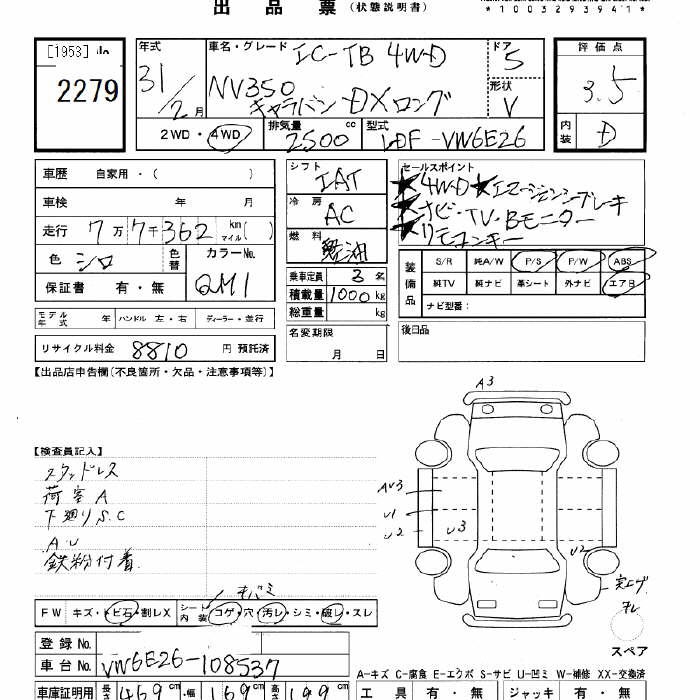 出品票 (状態説明書)
*1003293941*
[1953]
2279
年式 31/2月
車名・グレード IC-TB 4WD
NV350
キャラバン DXロング
ドア 5
形状 V
2WD・4WD
排気量 2500 cc
型式 LDF-VW6E26
評価点 3.5
内装 D
車歴 自家用・( )
車検 年 月
走行 7万7千362 km マイル( )
色 シロ 色替
カラーNo. QM1
保証書 有・無
シフト IAT
冷房 AC
燃料 軽油
乗車定員 3 名
積載量 1000 kg
総重量 kg
名変期限 月 日
セールスポイント
★4WD★エマージェンシーブレーキ
★ナビ・TV・Bモニター
★リモコンキー
装備品
S/R 純A/W P/S P/W ABS
純TV 純ナビ 革シート 外ナビ エアB
ナビ型番:
後日品
モデル年式 年 ハンドル 左・右 ディーラー・並行
リサイクル料金 8810 円 預託済
【出品店申告欄(不良箇所・欠品・注意事項等)】
【検査員記入】
スタッドレス
荷室A
下廻りS.C
AU
鉄粉付着
A3
AU3
U1
U2
U3
U2
スペア
キバミ
FW キズ・トビ石・割レX シート内装 コゲ・穴・汚レ・シミ・破レ・スレ
登録No.
車台No. VW6E26-108537
A-キズ C-腐食 E-エクボ S-サビ U-凹ミ W-補修 XX-交換済
車庫証明用 長さ 469 cm 幅 169 cm 高さ 199 cm
工具 有・無 ジャッキ 有・無